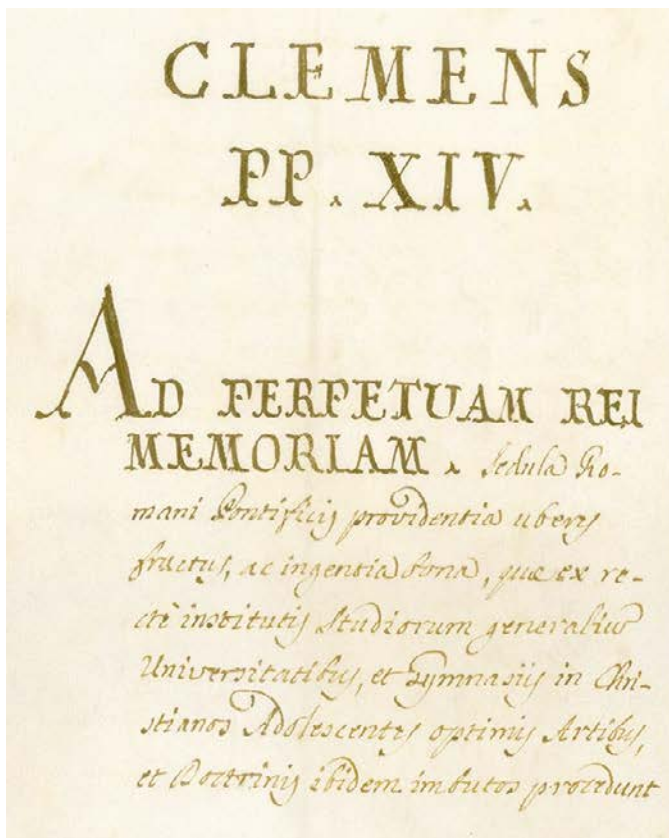 CLEMENS
PP. XIV.
AD PERPETUAM REI
MEMORIAM. Sedula Ro-
mani Pontificis providentia uberes
fructus, ac ingentia bona, quæ ex re-
ctè institutis Studiorum generalium
Universitatibus, et Gymnasiis in Chri-
stianos Adolescentes optimis Artibus,
et Doctrinis ibidem imbutos procedunt